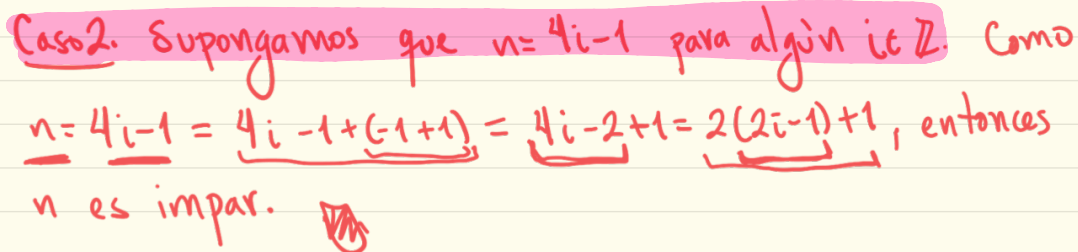 Caso 2. Supongamos que n= 4i-1 para algún i∈ℤ. Como
n= 4i-1 = 4i -1+(-1+1) = 4i-2+1= 2(2i-1)+1, entonces
n es impar.